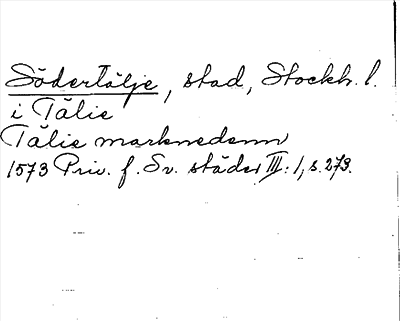 Södertälje, stad, Stockh. l.
i Tälie
Tälie marknedenn
1573 Priv. f. Sv. städer III: 1, s. 273.